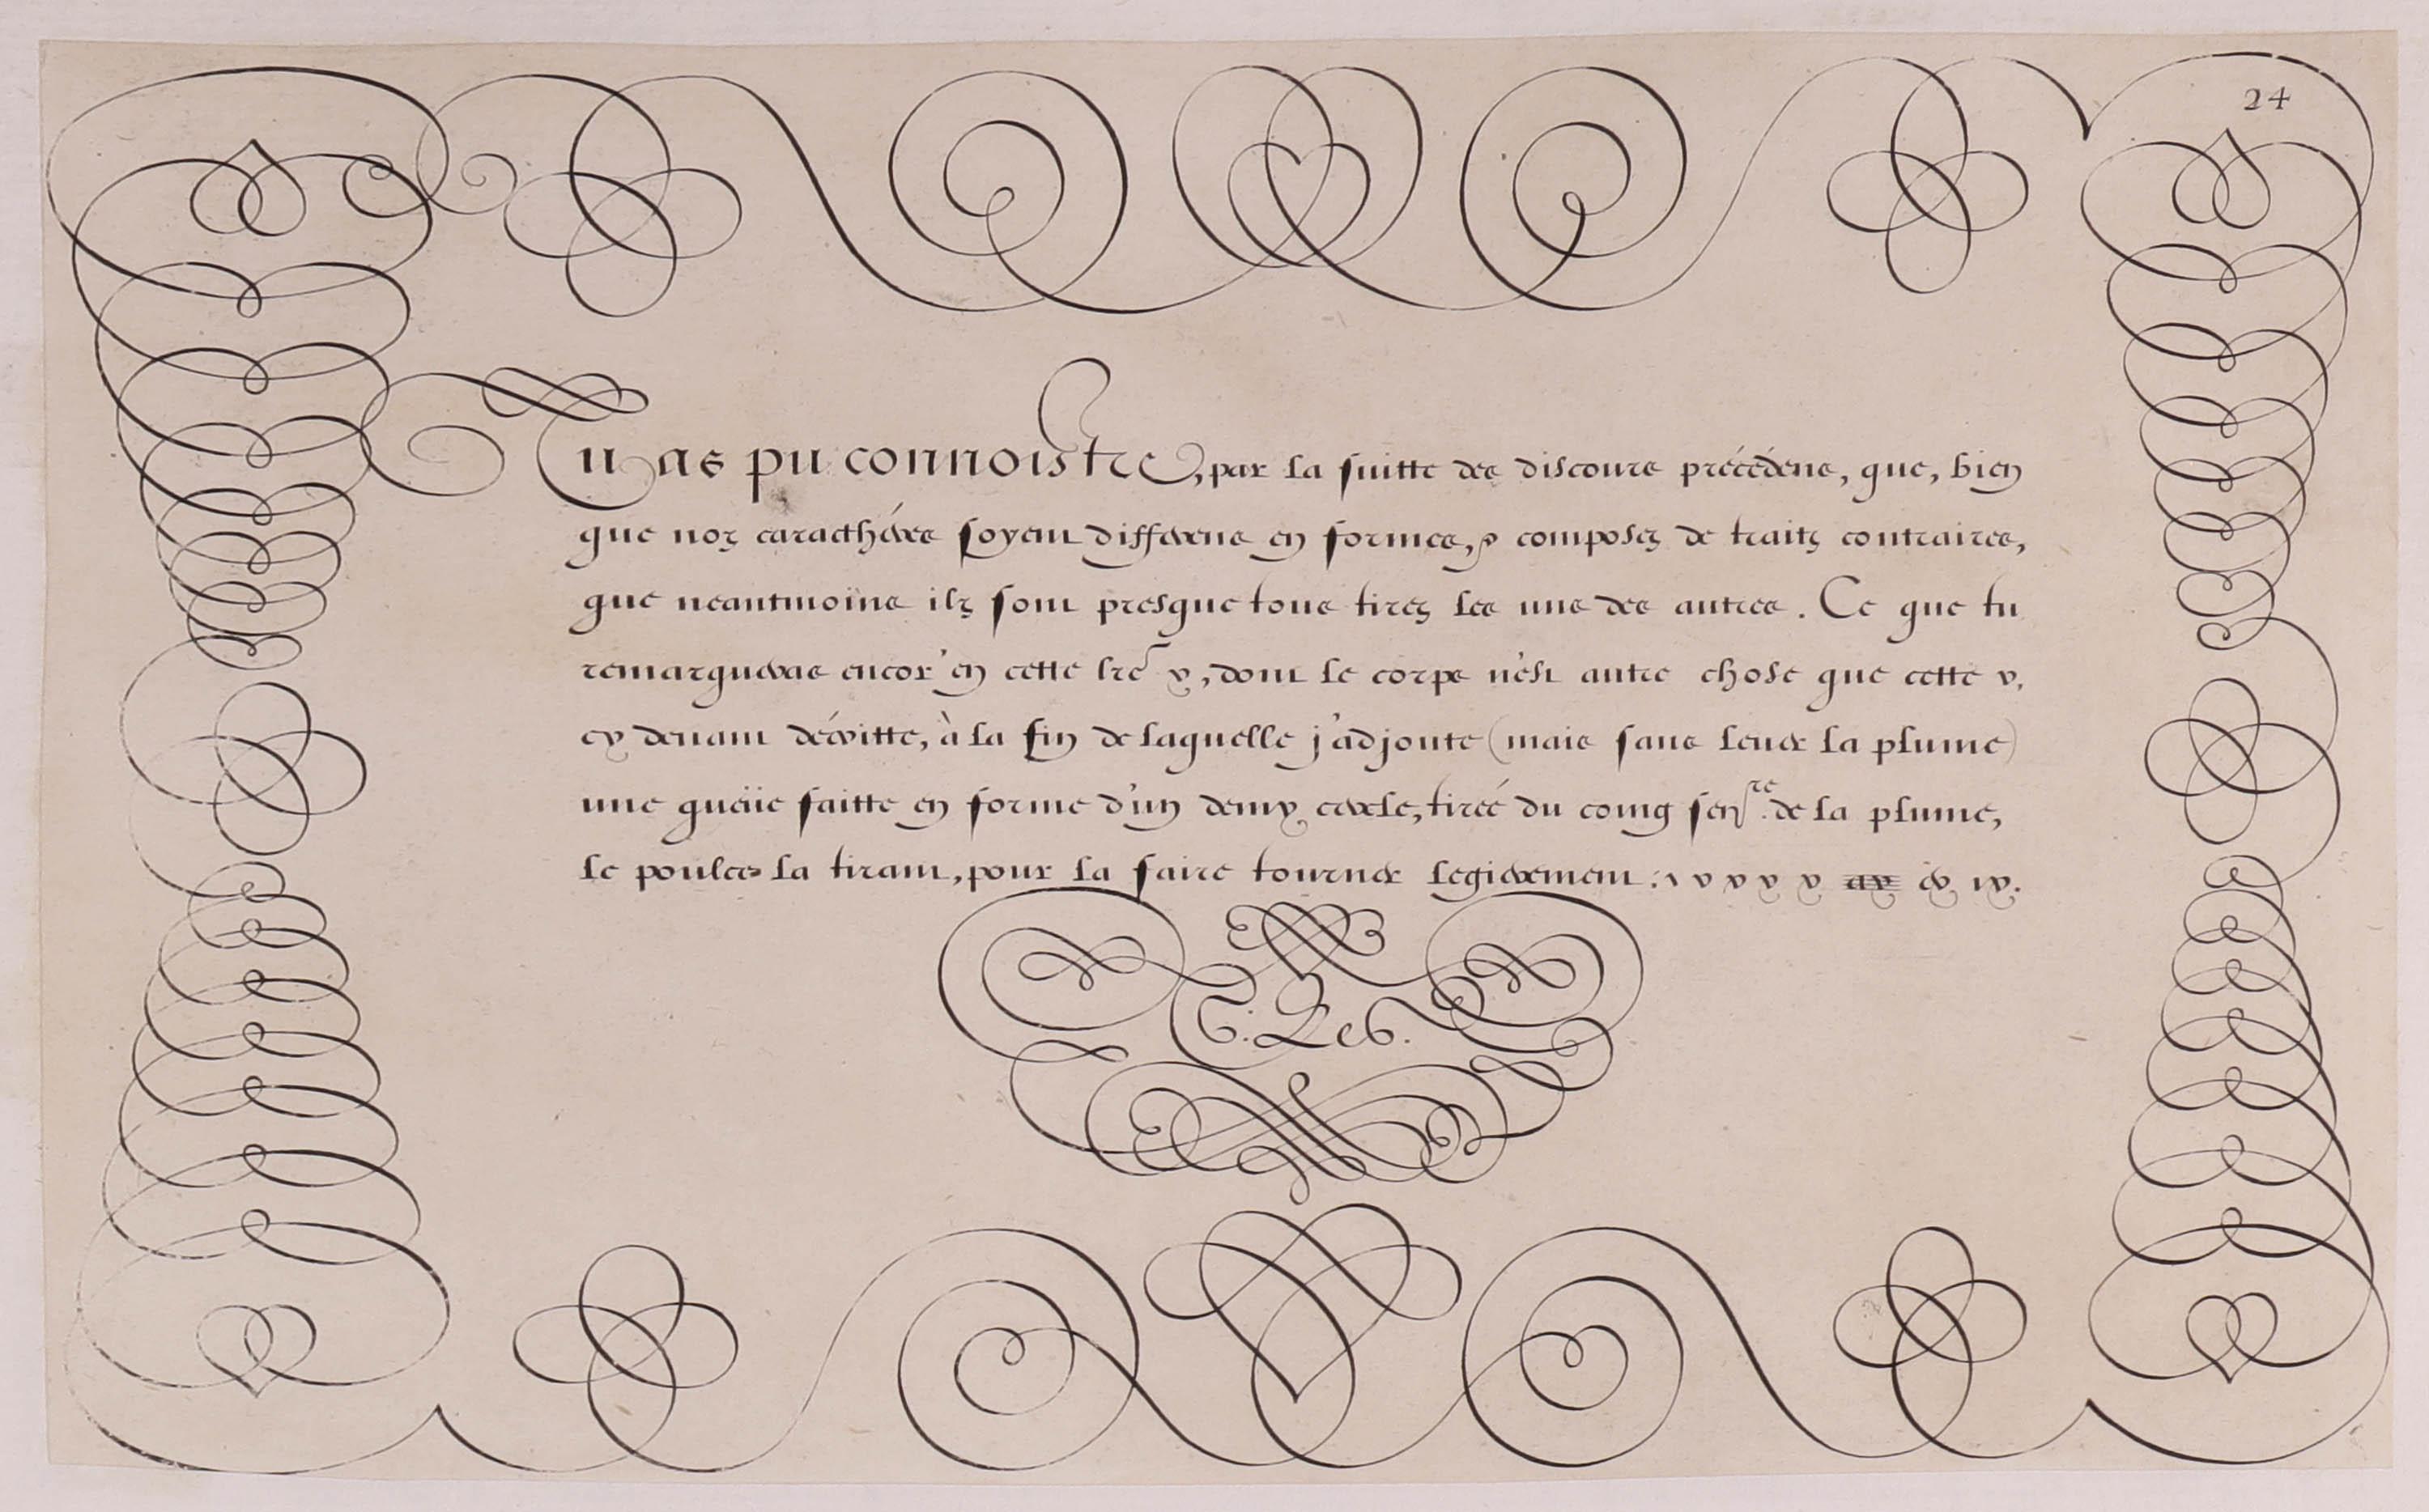 24
Tu as pu connoistre, par la suitte des discours précédens, que, bien
que noz caracthéres soyent differens en formes, & composez de traitz contraires,
que neantmoins ilz sont presque tous tirez les uns des autres. Ce que tu
remarqueras encor' en cette lrẽ y, dont le corps n'est autre chose que cette v,
cy devant décritte, à la fin de laquelle j'adjoute (mais sans lever la plume)
une queüe faitte en forme d'un demy cercle, tirée du coing sen.re de la plume,
le poulce la tirant, pour la faire tourner legierement: ı v v y y ay &y ıy.